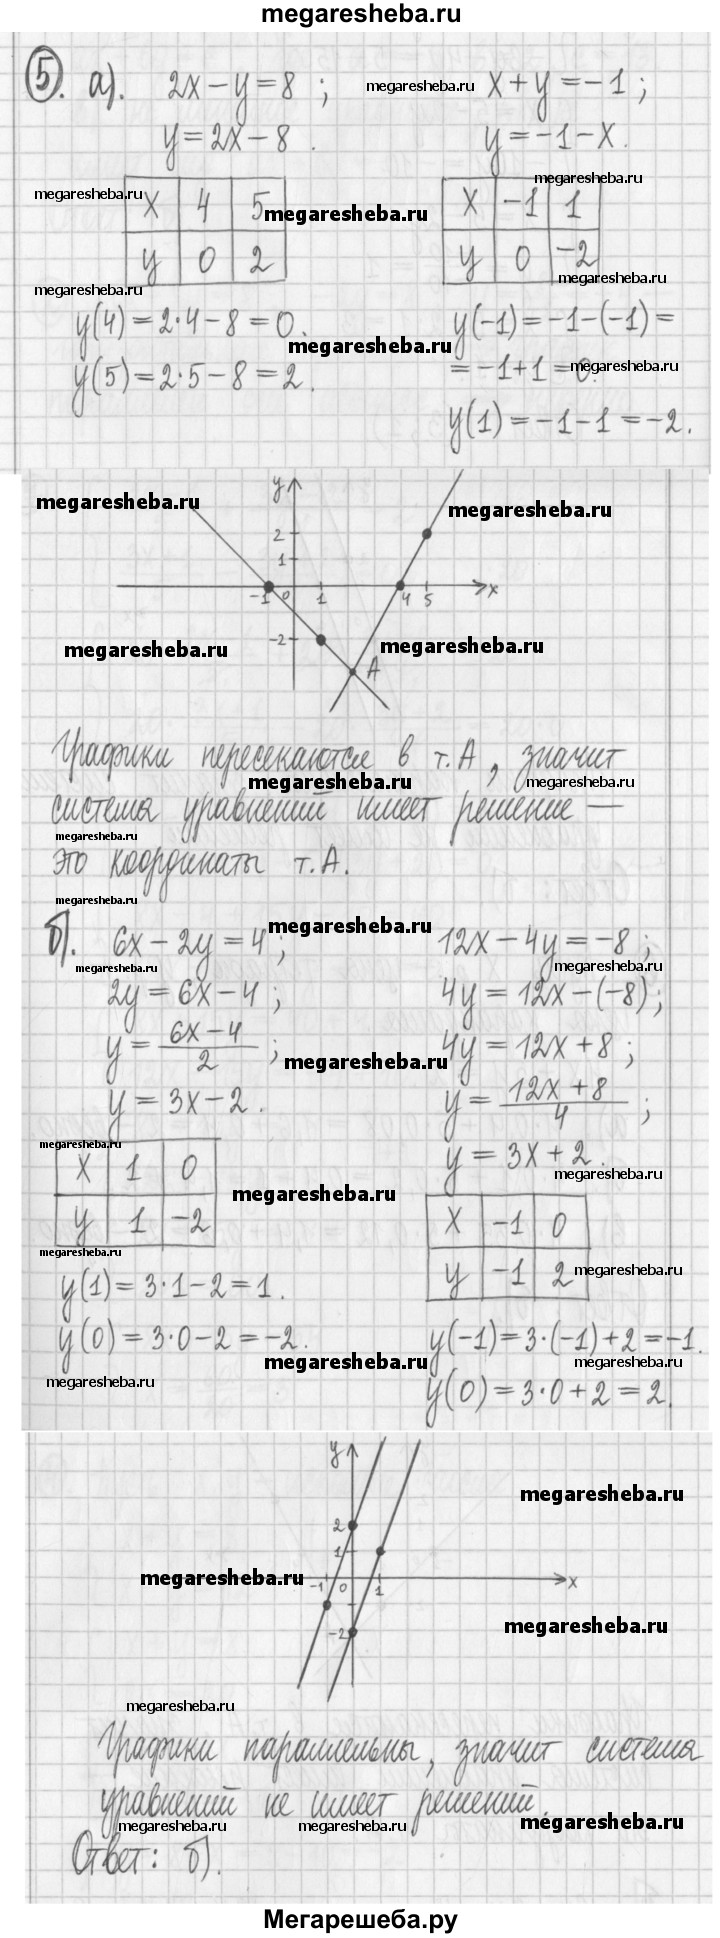 megaresheba.ru
5. а). 2x − y = 8 ; megaresheba.ru x + y = −1 ;
y = 2x − 8 . y = −1 − x .
megaresheba.ru
megaresheba.ru
x 4 5 x −1 1
megaresheba.ru
y 0 2 y 0 −2
megaresheba.ru
megaresheba.ru
y(4) = 2·4 − 8 = 0. y(−1) = −1 − (−1) =
megaresheba.ru
y(5) = 2·5 − 8 = 2. = −1 + 1 = 0.
megaresheba.ru
y(1) = −1 − 1 = −2.
y
megaresheba.ru
megaresheba.ru
2
1
−1 0 1 4 5 x
−2
megaresheba.ru megaresheba.ru
A
Графики пересекаются в т.А, значит
megaresheba.ru megaresheba.ru
система уравнений имеет решение —
megaresheba.ru
это координаты т.А.
megaresheba.ru
б). 6x − 2y = 4 ; megaresheba.ru 12x − 4y = −8 ;
megaresheba.ru megaresheba.ru
2y = 6x − 4 ; 4y = 12x − (−8) ;
y = (6x − 4)/2 ; megaresheba.ru 4y = 12x + 8 ;
y = 3x − 2 . y = (12x + 8)/4 ;
megaresheba.ru
y = 3x + 2 .
megaresheba.ru
x 1 0
megaresheba.ru
y 1 −2 x −1 0
megaresheba.ru
y −1 2
megaresheba.ru
y(1) = 3·1 − 2 = 1.
y(0) = 3·0 − 2 = −2. y(−1) = 3·(−1) + 2 = −1.
megaresheba.ru megaresheba.ru
megaresheba.ru
y(0) = 3·0 + 2 = 2.
y
megaresheba.ru
2
1
megaresheba.ru
−1 0 1 x
−2
megaresheba.ru
megaresheba.ru
Графики параллельны, значит система
уравнений не имеет решений.
megaresheba.ru megaresheba.ru megaresheba.ru
Ответ: б).
Мегарешеба.ру